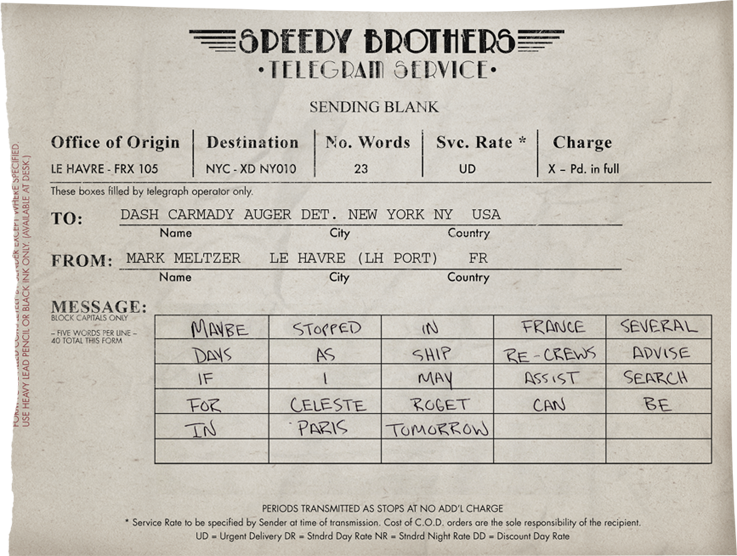 SPEEDY BROTHERS
•TELEGRAM SERVICE•
SENDING BLANK
Office of Origin Destination No. Words Svc. Rate * Charge
LE HAVRE - FRX 105 NYC - XD NY010 23 UD X – Pd. in full
These boxes filled by telegraph operator only.
TO: DASH CARMADY AUGER DET. NEW YORK NY USA
Name City Country
FROM: MARK MELTZER LE HAVRE (LH PORT) FR
Name City Country
MESSAGE:
BLOCK CAPITALS ONLY
– FIVE WORDS PER LINE –
40 TOTAL THIS FORM
MAYBE STOPPED IN FRANCE SEVERAL
DAYS AS SHIP RE-CREWS ADVISE
IF I MAY ASSIST SEARCH
FOR CELESTE ROGET CAN BE
IN PARIS TOMORROW
PERIODS TRANSMITTED AS STOPS AT NO ADD'L CHARGE
* Service Rate to be specified by Sender at time of transmission. Cost of C.O.D. orders are the sole responsibility of the recipient.
UD = Urgent Delivery DR = Stndrd Day Rate NR = Stndrd Night Rate DD = Discount Day Rate
EXCEPT WHERE SPECIFIED.
USE HEAVY LEAD PENCIL OR BLACK INK ONLY. (AVAILABLE AT DESK.)